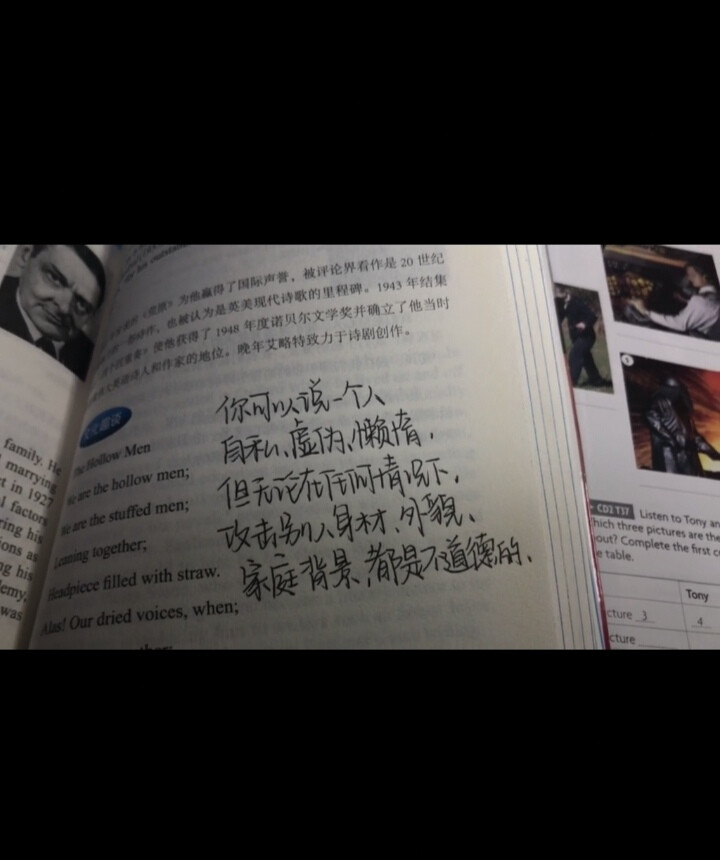 为他赢得了国际声誉，被评论界看作是 20 世纪
也被认为是英美现代诗歌的里程碑。1943 年结集
使他获得了 1948 年度诺贝尔文学奖并确立了他当时
英语诗人和作家的地位。晚年艾略特致力于诗剧创作。
The Hollow Men
We are the hollow men;
We are the stuffed men;
Leaning together;
Headpiece filled with straw.
Alas! Our dried voices, when;
你可以说一个人
自私、虚伪、懒惰，
但无论在任何情况下，
攻击别人身材、外貌、
家庭背景、都是不道德的、
family. He
marrying
in 1927
factors
ring his
ons as
ng his
was
4
CD2 T37 Listen to Tony an
hich three pictures are the
out? Complete the first co
e table.
Tony
cture 3
4
cture